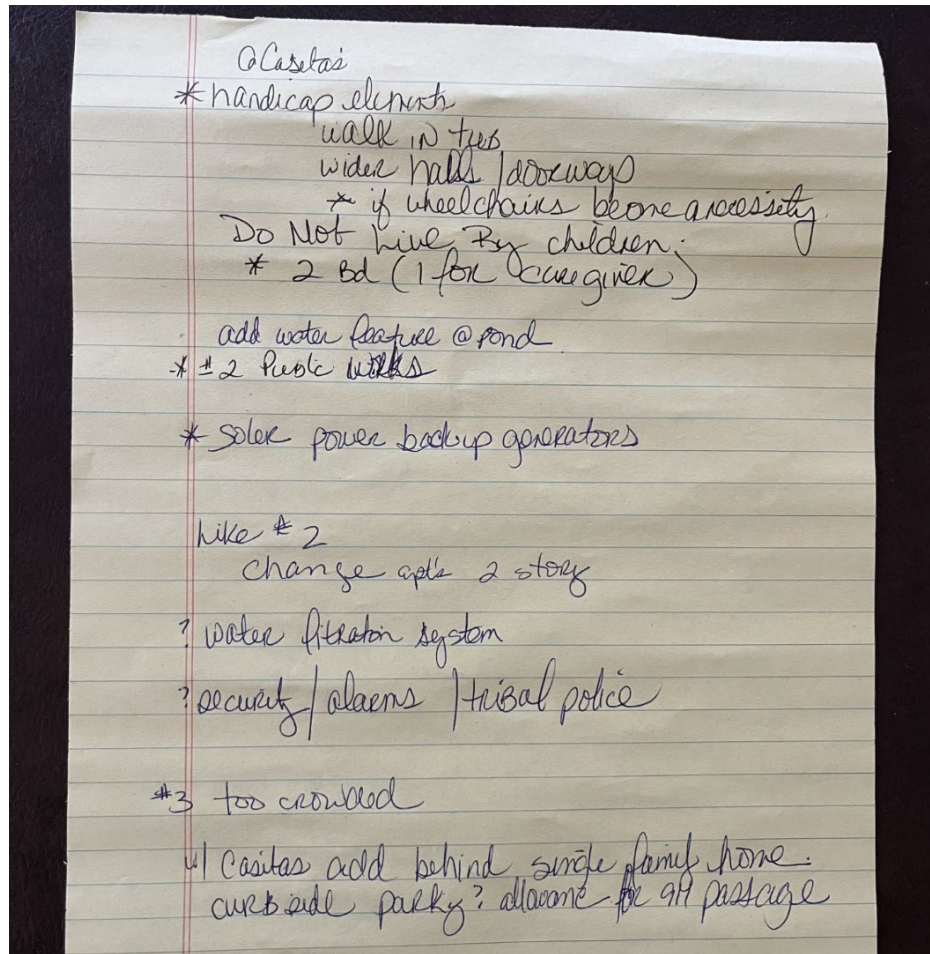 @Casitas
* handicap elements
walk in tub
wider halls / doorways
* if wheelchairs become a necessity.
Do Not Live By children.
* 2 Bd (1 for caregiver)
add water feature @ pond
* #2 Public
* Soler power backup generators
Like #2
change apt's 2 story
? water fitration system
? security / alarms / tribal police
#3 too crowded
w/ Casitas add behind single family home.
curb side parkg? allowance for 911 passage